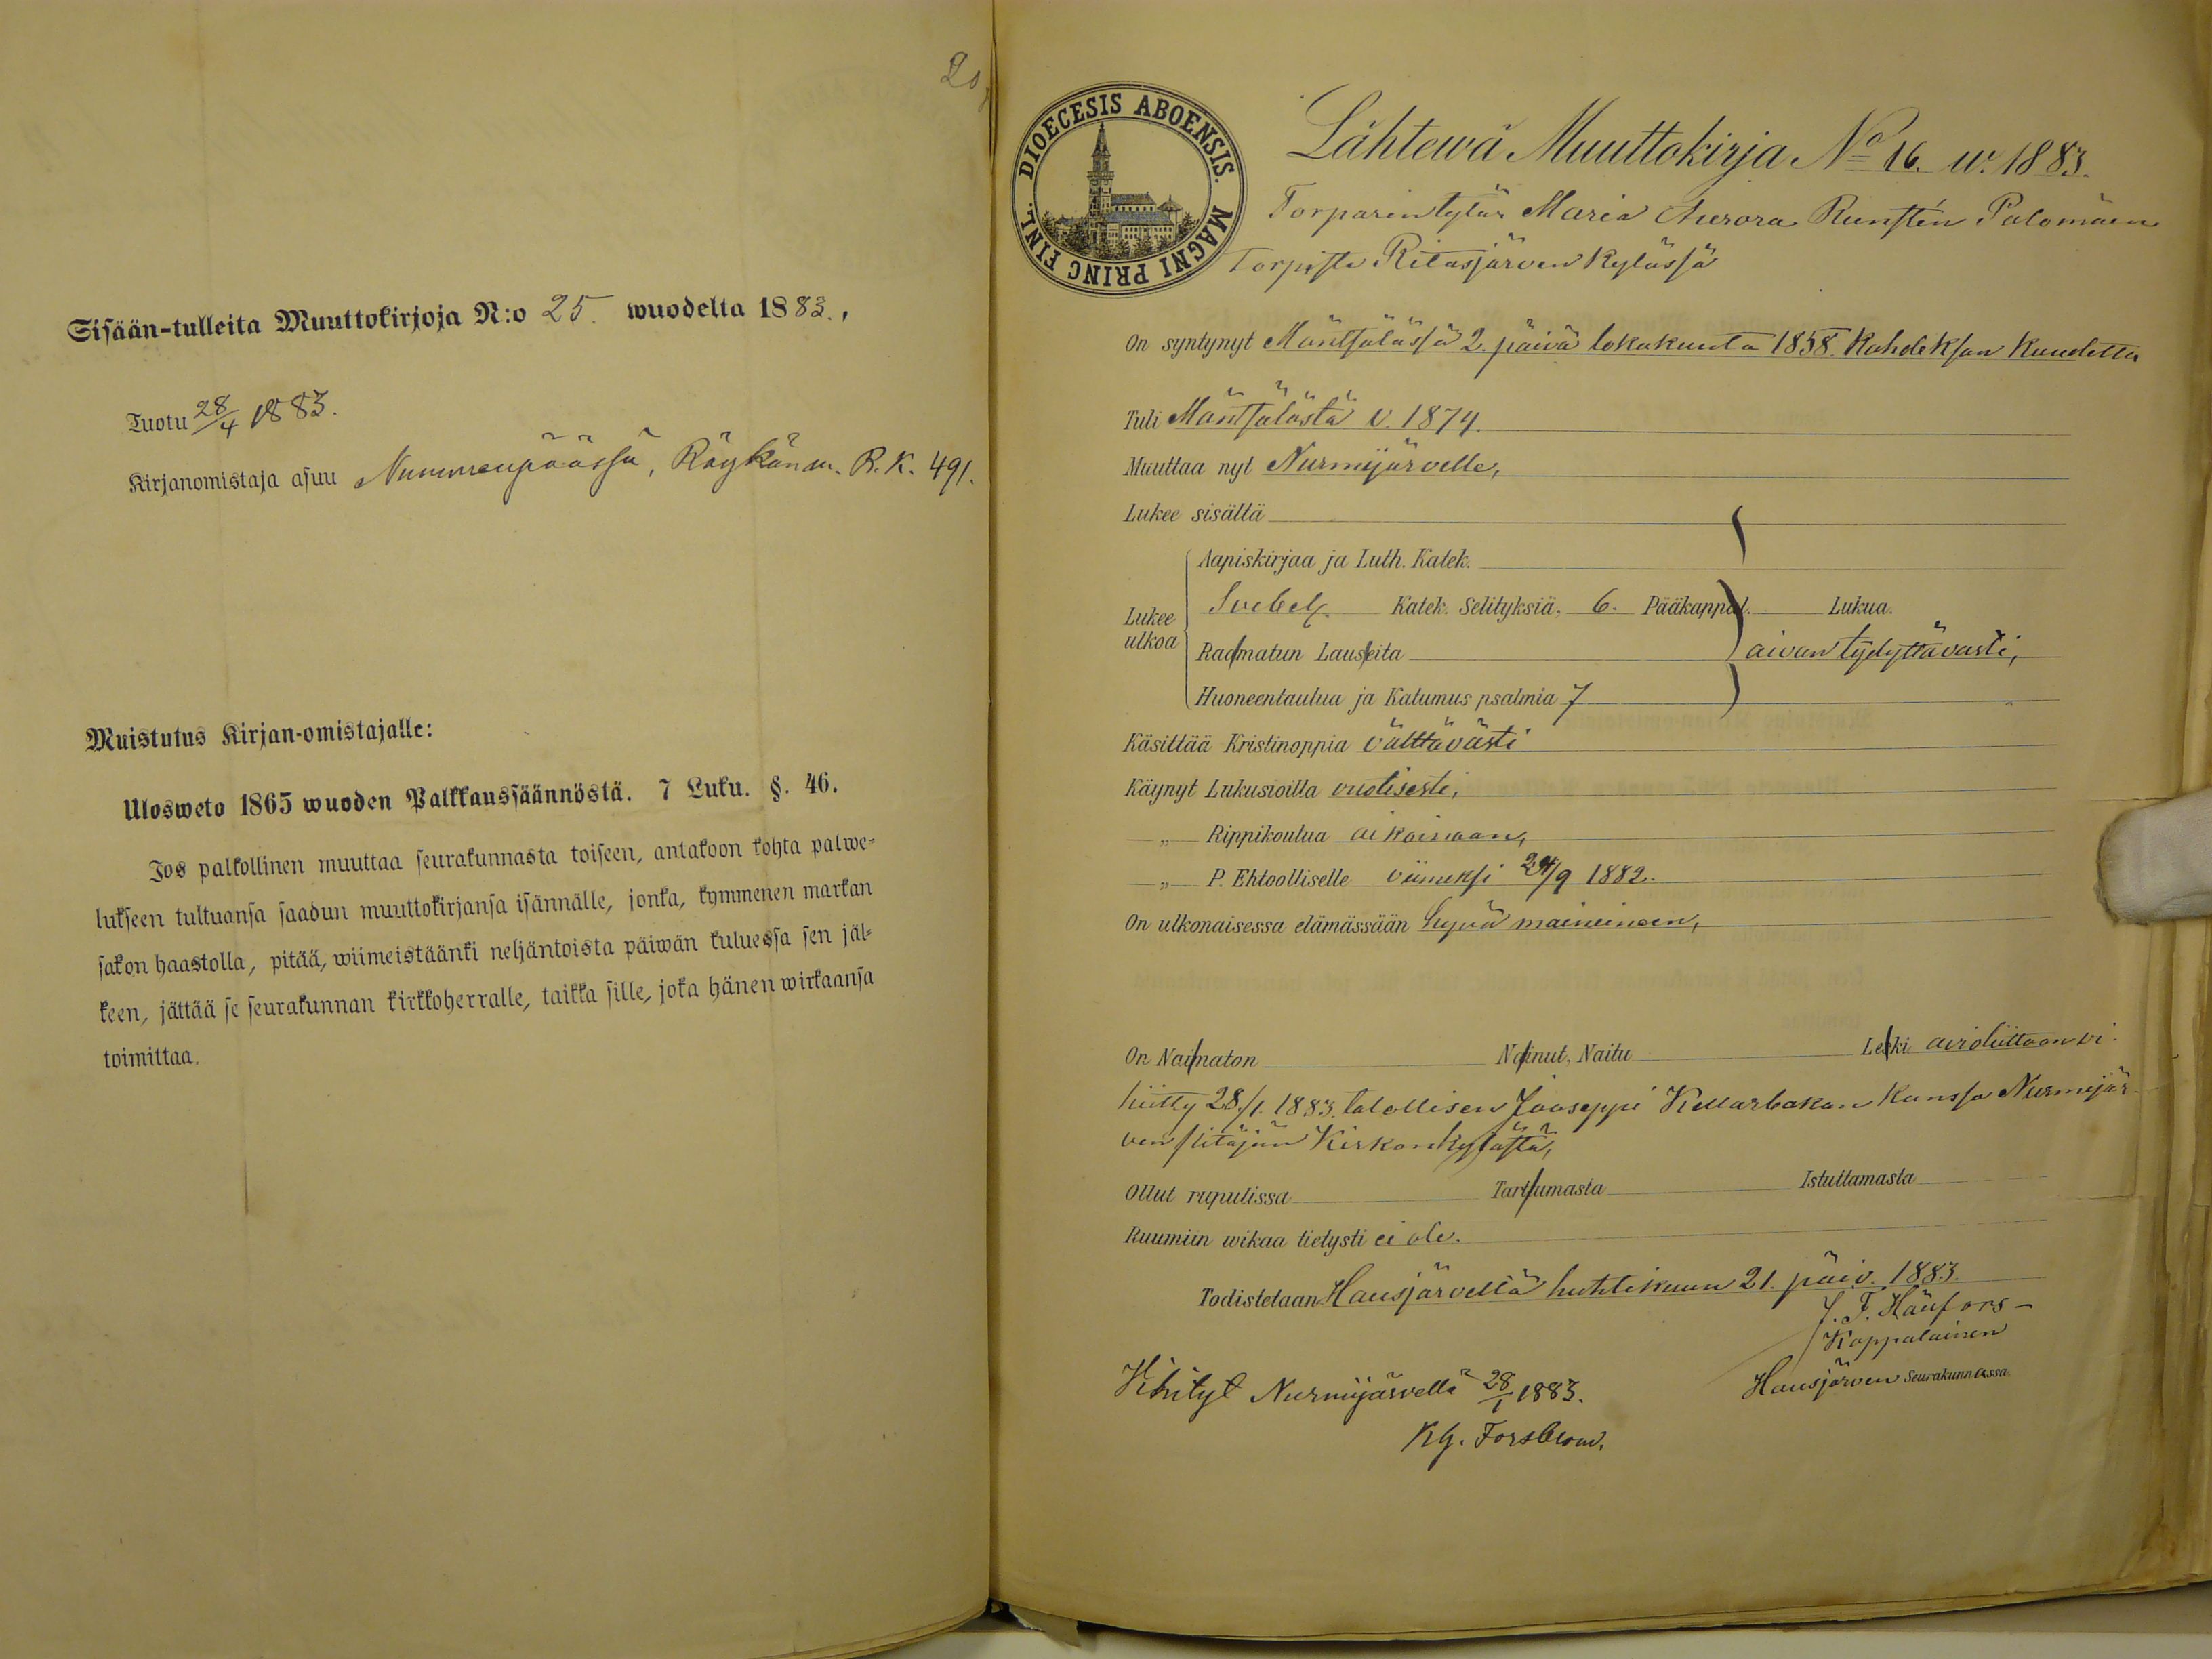 20
Sisään-tulleita Muuttokirjoja N:o 25. wuodelta 1883.,
Tuotu 28/4 1883.
Kirjanomistaja asuu Nummenpäässä, Röykän m. R.K. 491.
Muistutus Kirjan-omistajalle:
Ulosweto 1865 wuoden Palkkaussäännöstä. 7 Luku. §. 46.
Jos palkollinen muuttaa seurakunnasta toiseen, antakoon kohta palwe-
lukseen tultuansa saadun muuttokirjansa isännälle, jonka, kymmenen markan
sakon haastolla, pitää, wiimeistäänki neljäntoista päiwän kuluessa sen jäl-
keen, jättää se seurakunnan kirkkoherralle, taikka sille, joka hänen wirkaansa
toimittaa.
DIOECESIS ABOENSIS. MAGNI PRINC FINL.
Lähtewä Muuttokirja No 16. w. 1883.
Torparintytär Maria Aurora Runstén Palomäen
Torpista Ritasjärven kylässä
On syntynyt Mäntsälässä 2. päivä lokakuuta 1858. Kahdeksan kuudetta
Tuli Mäntsälästä v. 1874.
Muuttaa nyt Nurmijärvelle,
Lukee sisältä
Aapiskirjaa ja Luth. Katek.
Lukee ulkoa Svebel. Katek. Selityksiä. 6. Pääkappal. Lukua.
Raamatun Lauseita aivan tydyttävästi,
Huoneentaulua ja Katumus psalmia 7
Käsittää Kristinoppia välttävästi
Käynyt Lukusioilla vuotisesti,
„ Rippikoulua aikoinaan,
„ P. Ehtoolliselle viimeksi 24/9 1882.
On ulkonaisessa elämässään hyvä maineinen,
On Naimaton Nainut, Naitu Leski avioliittoon vi-
hitty 28./1. 1883. talollisen Jooseppi Kellarbakan kanssa Nurmijär-
ven pitäjän Kirkonkylästä,
Ollut rupulissa Tarttumasta Istuttamasta
Ruumiin wikaa tietysti ei ole.
Todistetaan Hausjärvellä huhtikuun 21. päiv. 1883.
J. F. Hänfors
Kappalainen
Hausjärven Seurakunnassa
Vihityt Nurmijärvellä 28/1 1883.
Kg. Forsblom.